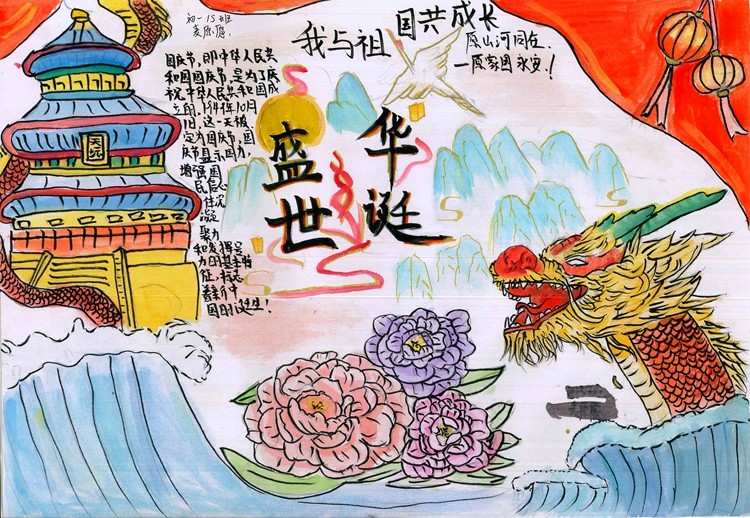 初一15班
我与祖国共成长
愿山河同在,
一愿家国永安.!
国庆节,即中华人民共
和国国庆节,是为了庆
祝中华人民共和国成
立的,1949年10月
1日,这一天被
定为国庆节,国
庆节显示国力,
增强国
民信心
体次
凝
聚力
力的基本特
征,标志
着新中
国的诞生!
盛世
华诞